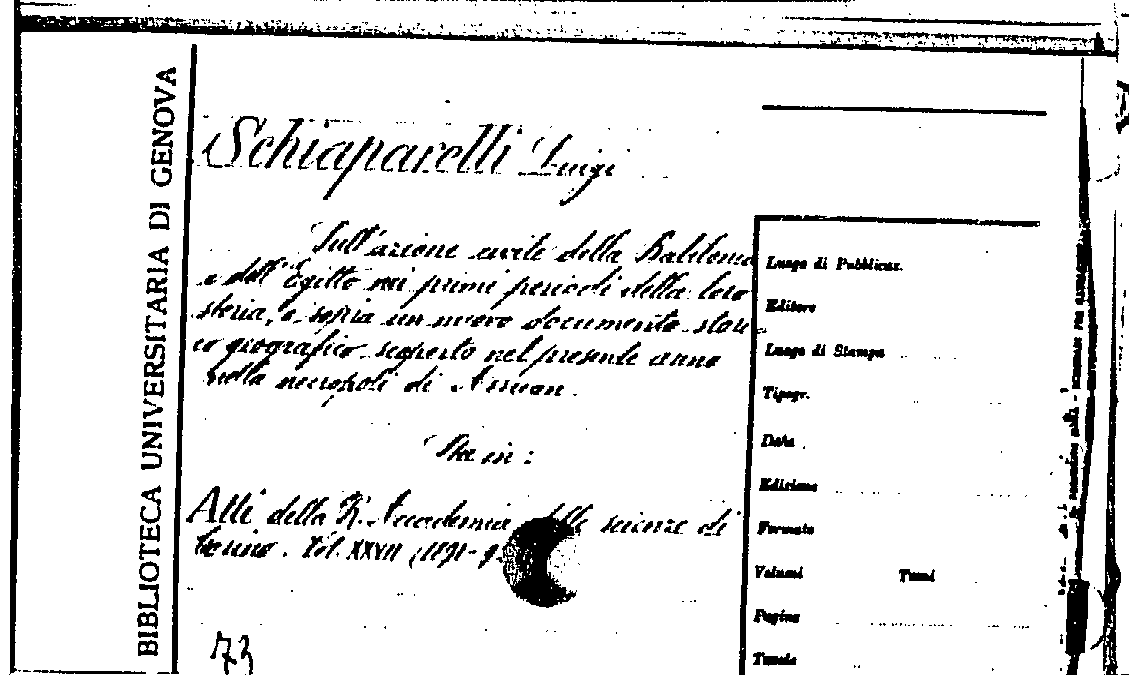 BIBLIOTECA UNIVERSITARIA DI GENOVA
Schiaparelli Luigi
Sull'azione civile della Babilonia
e dell'Egitto nei primi periodi della loro
storia, e sopra un nuovo documento stori-
co geografico scoperto nel presente anno
nella necropoli di Assuan.
Sta in:
Atti della R. Accademia delle scienze di
Torino. Vol. XXVII (1891-9
73
Luogo di Pubblicaz.
Editore
Luogo di Stampa
Tipogr.
Data
Edizione
Formato
Volumi Tomi
Pagine
Tavole